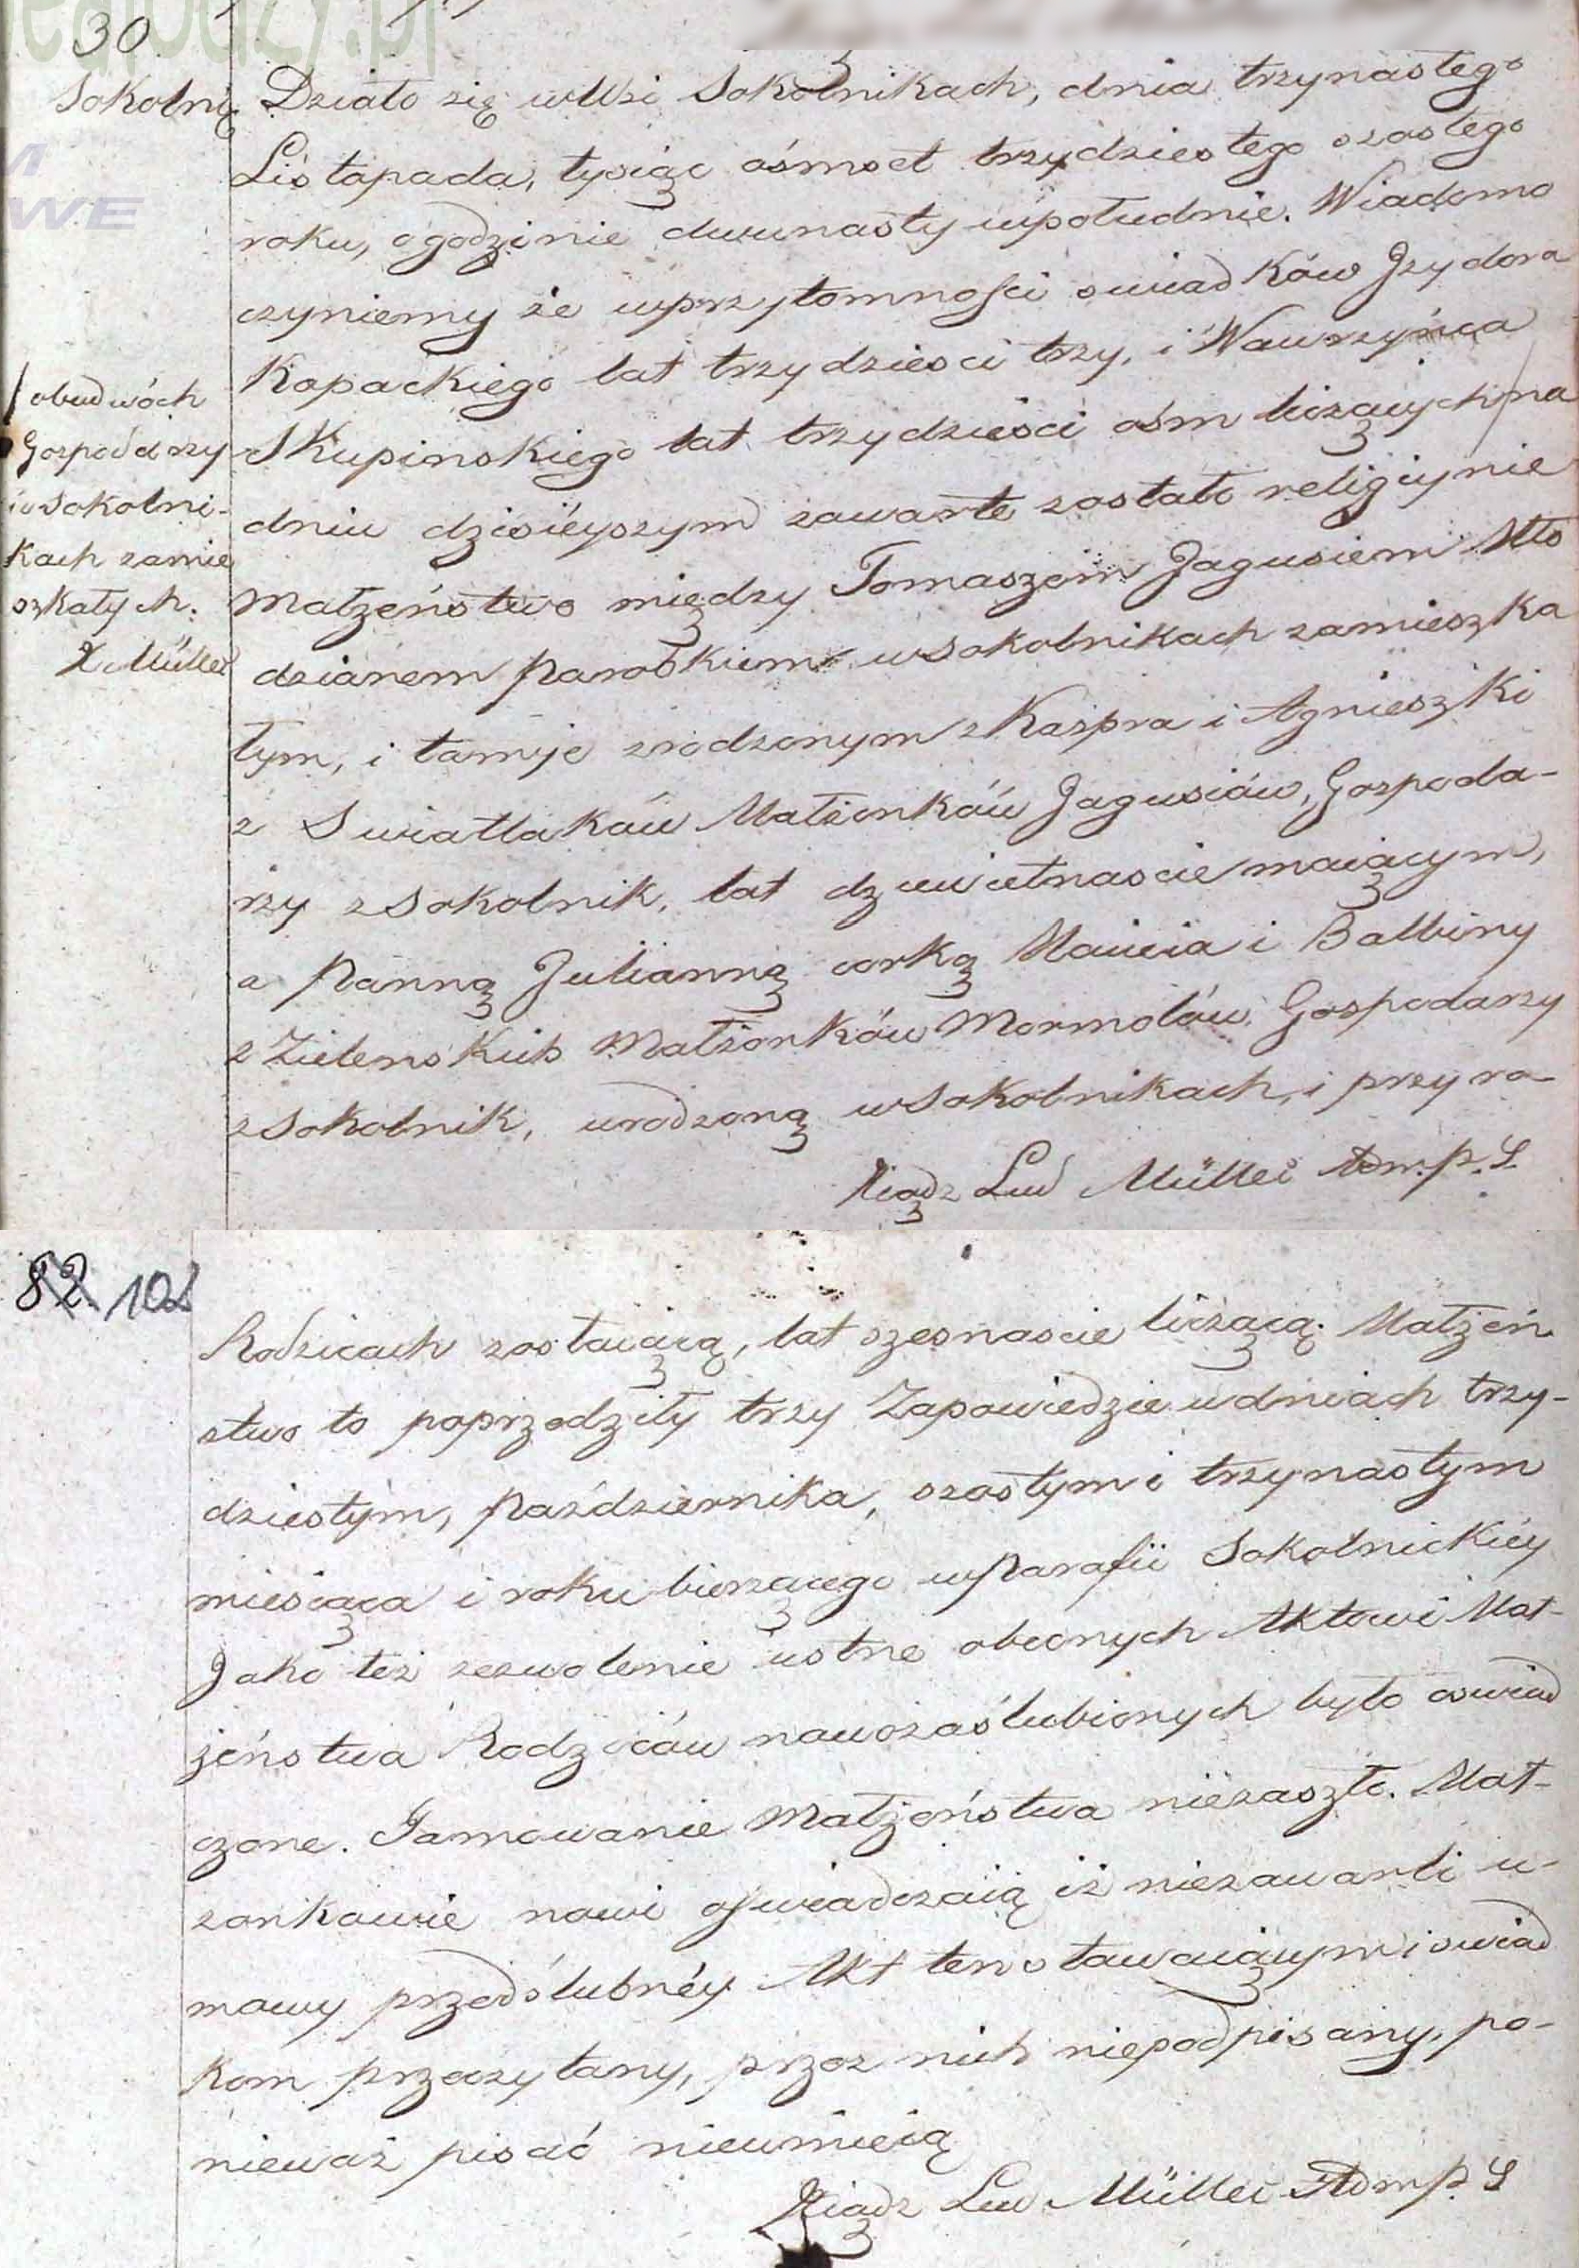 30
Sokolni
Działo się wWsi Sokolnikach, dnia trzynastego
Listopada, tysiąc ośmset trzydziestego szostego
roku, o godzinie dwunasty wpołudnie. Wiadomo
czyniemy że wprzytomności swiadków Jzydora
Kopackiego lat trzydziesci trzy, i Wawrzyńca
Skupinskiego lat trzydzieści ośm liczących/na
/ obudwóch
Gospodarzy
w Sokolni-
kach zamie
szkałych.
X Müller
dniu dzisiéyszym zawarte zostało religiynie
Małżeństwo między Tomaszem Jagusiem Mło
dzianem Parobkiem wSokolnikach zamieszka
łym, i tamże zrodzonym z Kaspra i Agnieszki
z Swiatlaków Małżonków Jagusiów, Gospoda-
rzy zSokolnik, lat dziewietnascie maiącym,
a Panną Julianną corką Macieia i Balbiny
z Zielenskich Małżonków Mormolów Gospodarzy
zSokolnik, urodzoną wSokolnikach, i przy ro-
Xiądz Lud Müller Adm. P. S.
82 102
Rodzicach zostaiącą, lat szesnascie liczącą. Małżeń-
stwo to poprzedziły trzy Zapowiedzie wdniach trzy-
dziestym, Października, szostym i trzynastym
miesiąca i roku bieżącego wParafii Sokolnickiéy
Jako też zezwolenie ustne obecnych Aktowi Mał-
żeństwa Rodziców nowozaślubionych było oswiad
czone. Tamowanie Małżeństwa niezaszło. Mał-
żonkowie nowi oświadczaią iż niezawarli u-
mowy przedślubnéy. Akt ten stawaiącym i swiad
kom przeczytany, przez nich niepodpisany, po-
nieważ pisać nieumieią
Xiądz Lud Müller Adm P. S